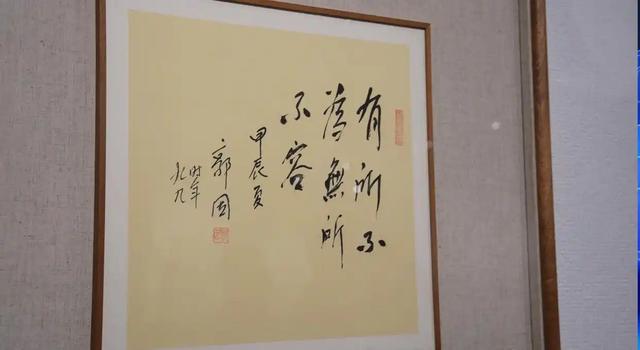 有所不
為無所
不容
甲辰夏
郭固
时年
九九